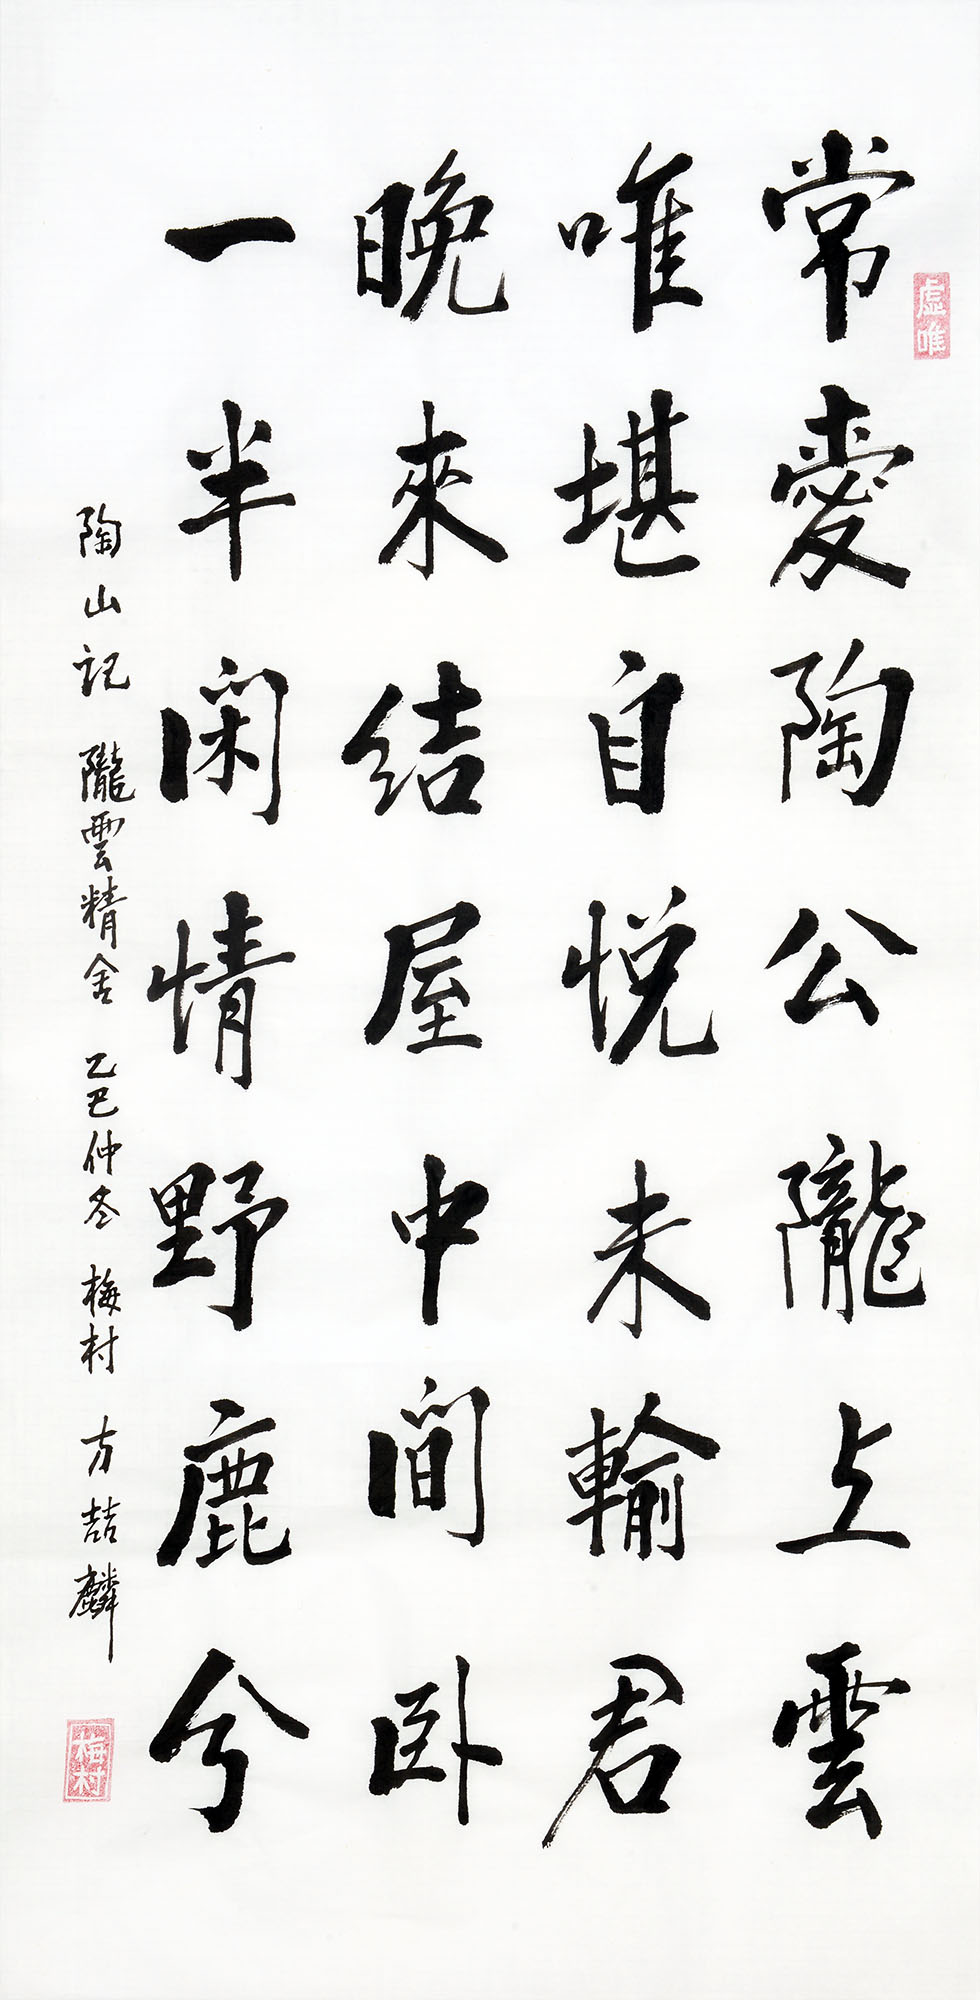 常愛陶公隴上雲
唯堪自悦未輸君
晚來結屋中間卧
一半閑情野鹿兮
陶山記 隴雲精舍 乙巳仲冬 梅村 方喆麟
虛唯
梅村